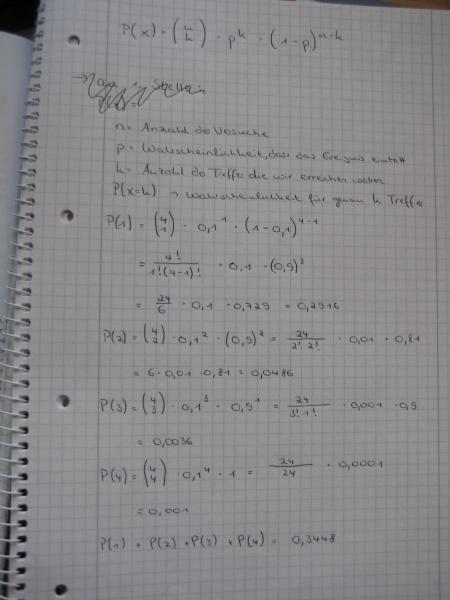 P(x) = (n k) · p^k · (1-p)^n-k
n = Anzahl der Versuche
p = Wahrscheinlichkeit, dass das Ereignis eintritt
k = Anzahl der Treffer die wir erreichen wollen
P(x=k) → Wahrscheinlichkeit für genau k Treffer
P(1) = (4 1) · 0,1^1 · (1-0,1)^4-1
= 4! / 1!(4-1)! · 0,1 · (0,9)^3
= 24/6 · 0,1 · 0,729 = 0,2916
P(2) = (4 2) · 0,1^2 · (0,9)^2 = 24 / 2!·2! · 0,01 · 0,81
= 6 · 0,01 · 0,81 = 0,0486
P(3) = (4 3) · 0,1^3 · 0,9^1 = 24 / 3!·1! · 0,001 · 0,9
= 0,0036
P(4) = (4 4) · 0,1^4 · 1 = 24/24 · 0,0001
= 0,001
P(1) + P(2) + P(3) + P(4) = 0,3448